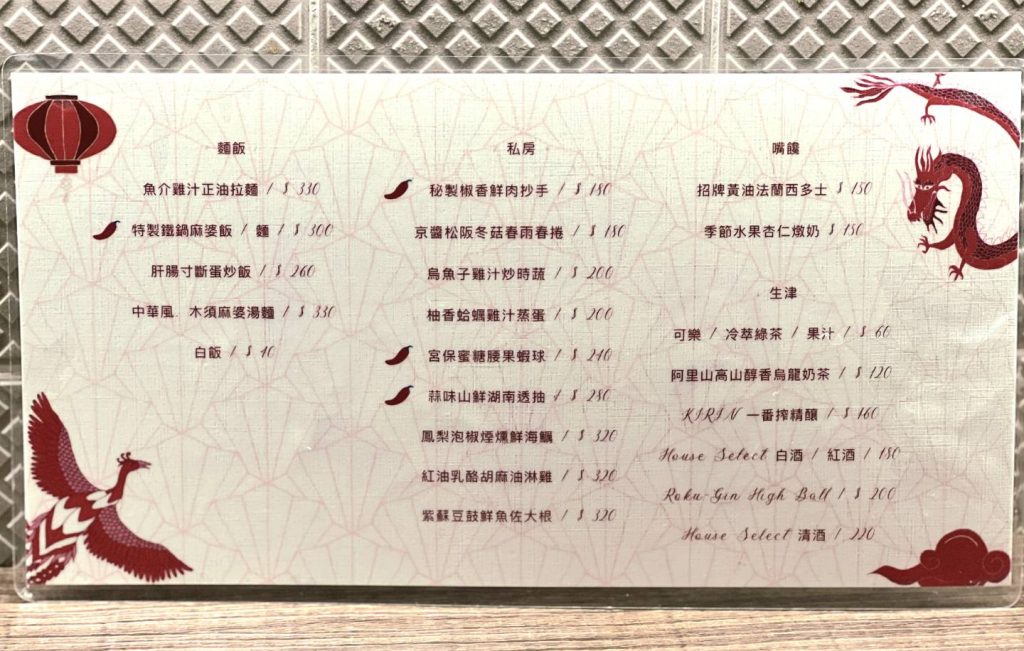 麵飯
魚介雞汁正油拉麵 / $ 330
特製鐵鍋麻婆飯 / 麵 / $ 300
肝腸寸斷蛋炒飯 / $ 260
中華風 木須麻婆湯麵 / $ 330
白飯 / $ 10
私房
秘製椒香鮮肉抄手 / $ 180
京醬松阪冬菇春雨春捲 / $ 180
烏魚子雞汁炒時蔬 / $ 200
柚香蛤蠣雞汁蒸蛋 / $ 200
宮保蜜糖腰果蝦球 / $ 240
蒜味山鮮湖南透抽 / $ 280
鳳梨泡椒煙燻鮮海鱺 / $ 320
紅油乳酪胡麻油淋雞 / $ 320
紫蘇豆鼓鮮魚佐大根 / $ 320
嘴饞
招牌黃油法蘭西多士 $ 150
季節水果杏仁燉奶 $ 180
生津
可樂 / 冷萃綠茶 / 果汁 / $ 60
阿里山高山醇香烏龍奶茶 / $ 120
KIRIN 一番搾精釀 / $ 160
House Select 白酒 / 紅酒 / 180
Roku-Gin High Ball / $ 200
House Select 清酒 / 220